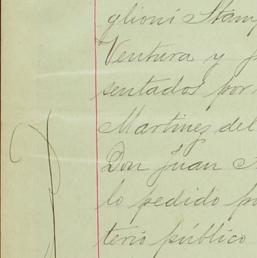 glioni Stamp
Ventura y p
sentados por
Martinez del
Don juan M
lo pedido po
terio público